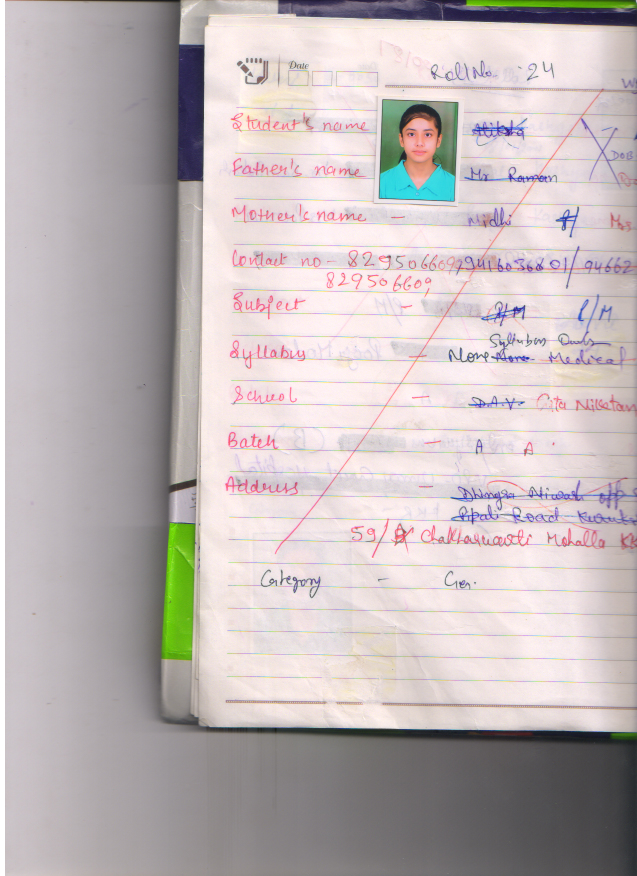 Date
Roll No. 24
Student's name
DOB
Father's name Mr Raman
Mother's name - Nidhi Mrs
Contact no - 8295066092 9416056801/ 94662
8295066092
Subject - P/M
Syllabus - None Medical
School - D.A.V. Gita Niketan
Batch - A A
Address - Dhingra Niwas opp
Road
59/ Mohalla
Category - Gen.